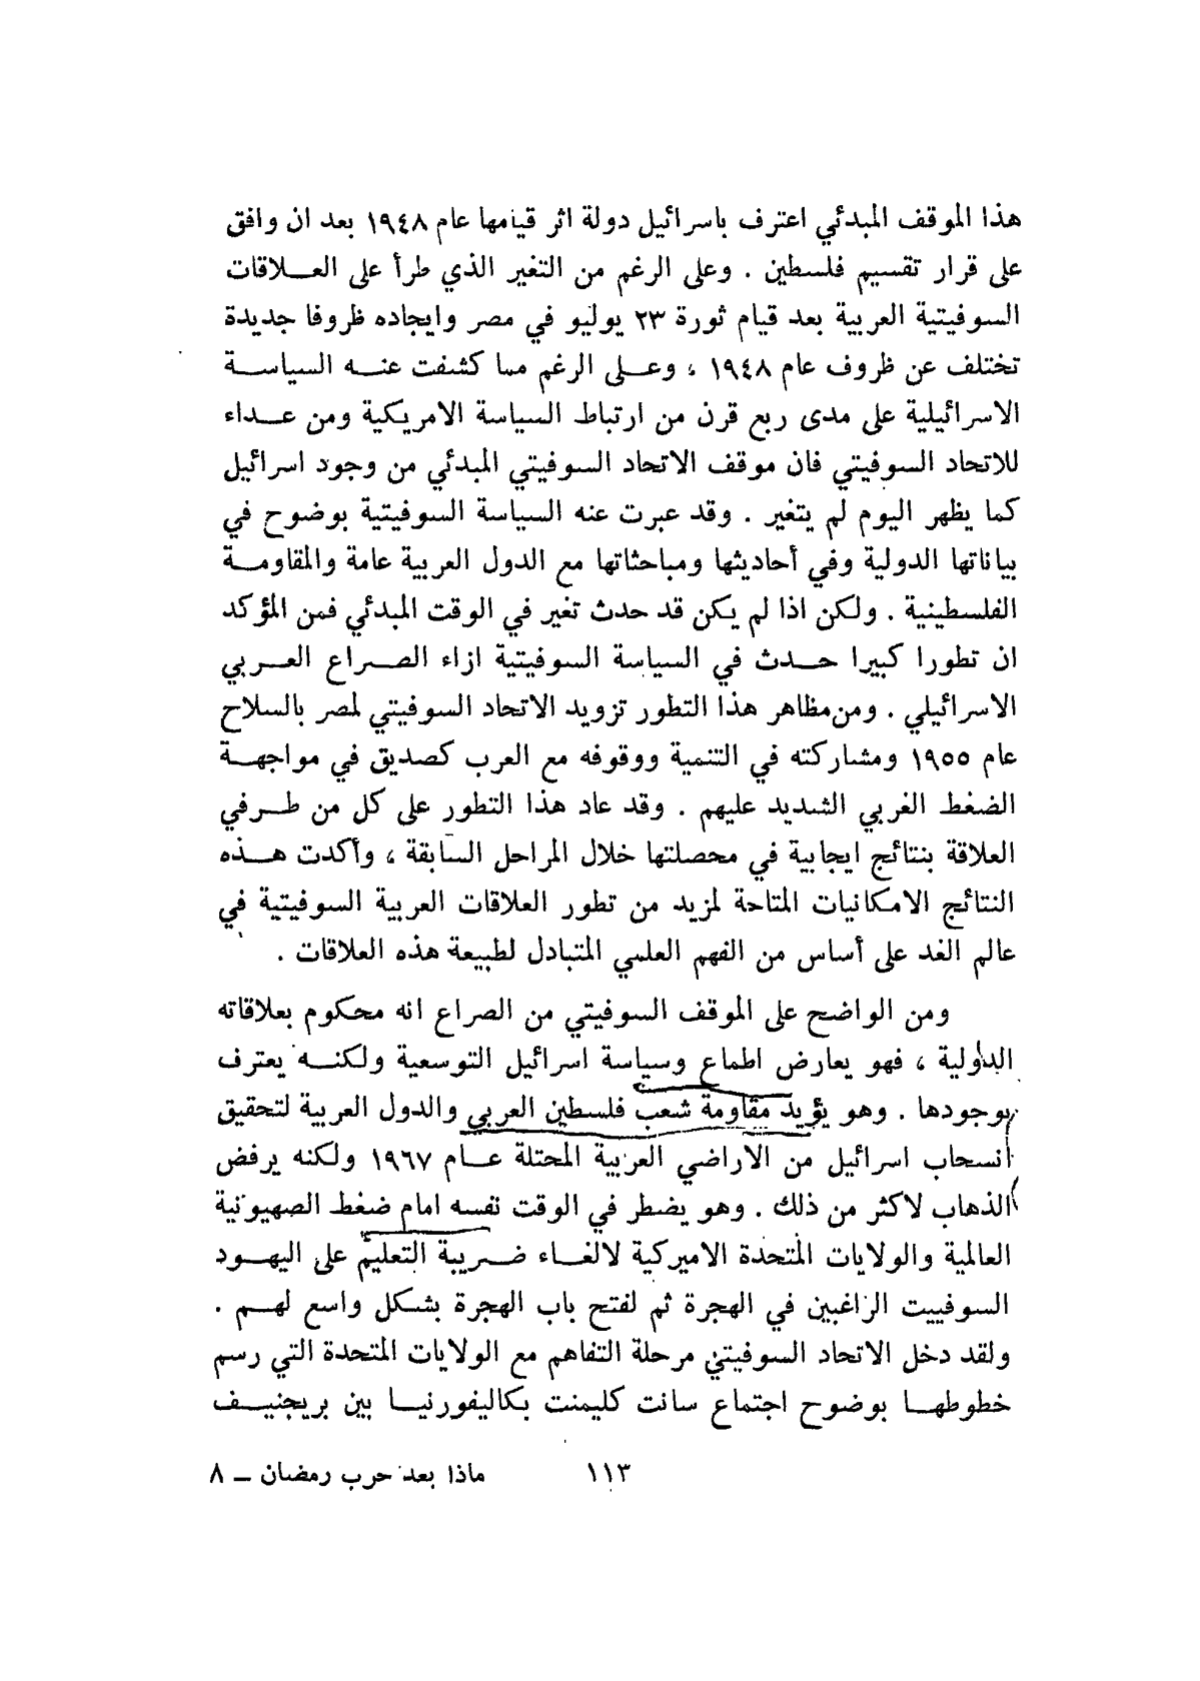 هذا الموقف المبدئي اعترف باسرائيل دولة اثر قيامها عام ١٩٤٨ بعد ان وافق
على قرار تقسيم فلسطين . وعلى الرغم من التغير الذي طرأ على العـلاقات
السوفيتية العربية بعد قيام ثورة ٢٣ يوليو في مصر وايجاده ظروفا جديدة
تختلف عن ظروف عام ١٩٤٨ ، وعـلى الرغم مما كشفت عنـه السياسـة
الاسرائيلية على مدى ربع قرن من ارتباط السياسة الامريكية ومن عـداء
للاتحاد السوفيتي فان موقف الاتحاد السوفيتي المبدئي من وجود اسرائيل
كما يظهر اليوم لم يتغير . وقد عبرت عنه السياسة السوفيتية بوضوح في
بياناتها الدولية وفي أحاديثها ومباحثاتها مع الدول العربية عامة والمقاومـة
الفلسطينية . ولكن اذا لم يكن قد حدث تغير في الوقت المبدئي فمن المؤكد
ان تطورا كبيرا حـدث في السياسة السوفيتية ازاء الصـراع العـربي
الاسرائيلي . ومن مظاهر هذا التطور تزويد الاتحاد السوفيتي لمصر بالسلاح
عام ١٩٥٥ ومشاركته في التنمية ووقوفه مع العرب كصديق في مواجهـة
الضغط الغربي الشديد عليهم . وقد عاد هذا التطور على كل من طـرفي
العلاقة بنتائج ايجابية في محصلتها خلال المراحل السابقة ، وأكدت هـذه
النتائج الامكانيات المتاحة لمزيد من تطور العلاقات العربية السوفيتية في
عالم الغد على أساس من الفهم العلمي المتبادل لطبيعة هذه العلاقات .
ومن الواضح على الموقف السوفيتي من الصراع انه محكوم بعلاقاته
الدولية ، فهو يعارض اطماع وسياسة اسرائيل التوسعية ولكنـه يعترف
بوجودها . وهو يؤيد مقاومة شعب فلسطين العربي والدول العربية لتحقيق
انسحاب اسرائيل من الاراضي العربية المحتلة عـام ١٩٦٧ ولكنه يرفض
الذهاب لاكثر من ذلك . وهو يضطر في الوقت نفسه امام ضغط الصهيونية
العالمية والولايات المتحدة الاميركية لالغـاء ضـريبة التعليم على اليهـود
السوفييت الراغبين في الهجرة ثم لفتح باب الهجرة بشكل واسع لهـم .
ولقد دخل الاتحاد السوفيتي مرحلة التفاهم مع الولايات المتحدة التي رسم
خطوطهـا بوضوح اجتماع سانت كليمنت بكاليفورنيـا بين بريجنيـف
١١٣
ماذا بعد حرب رمضان ـ ٨